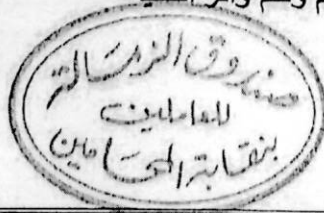 صندوق الزمالة
للعاملين
بنقابة المحامين